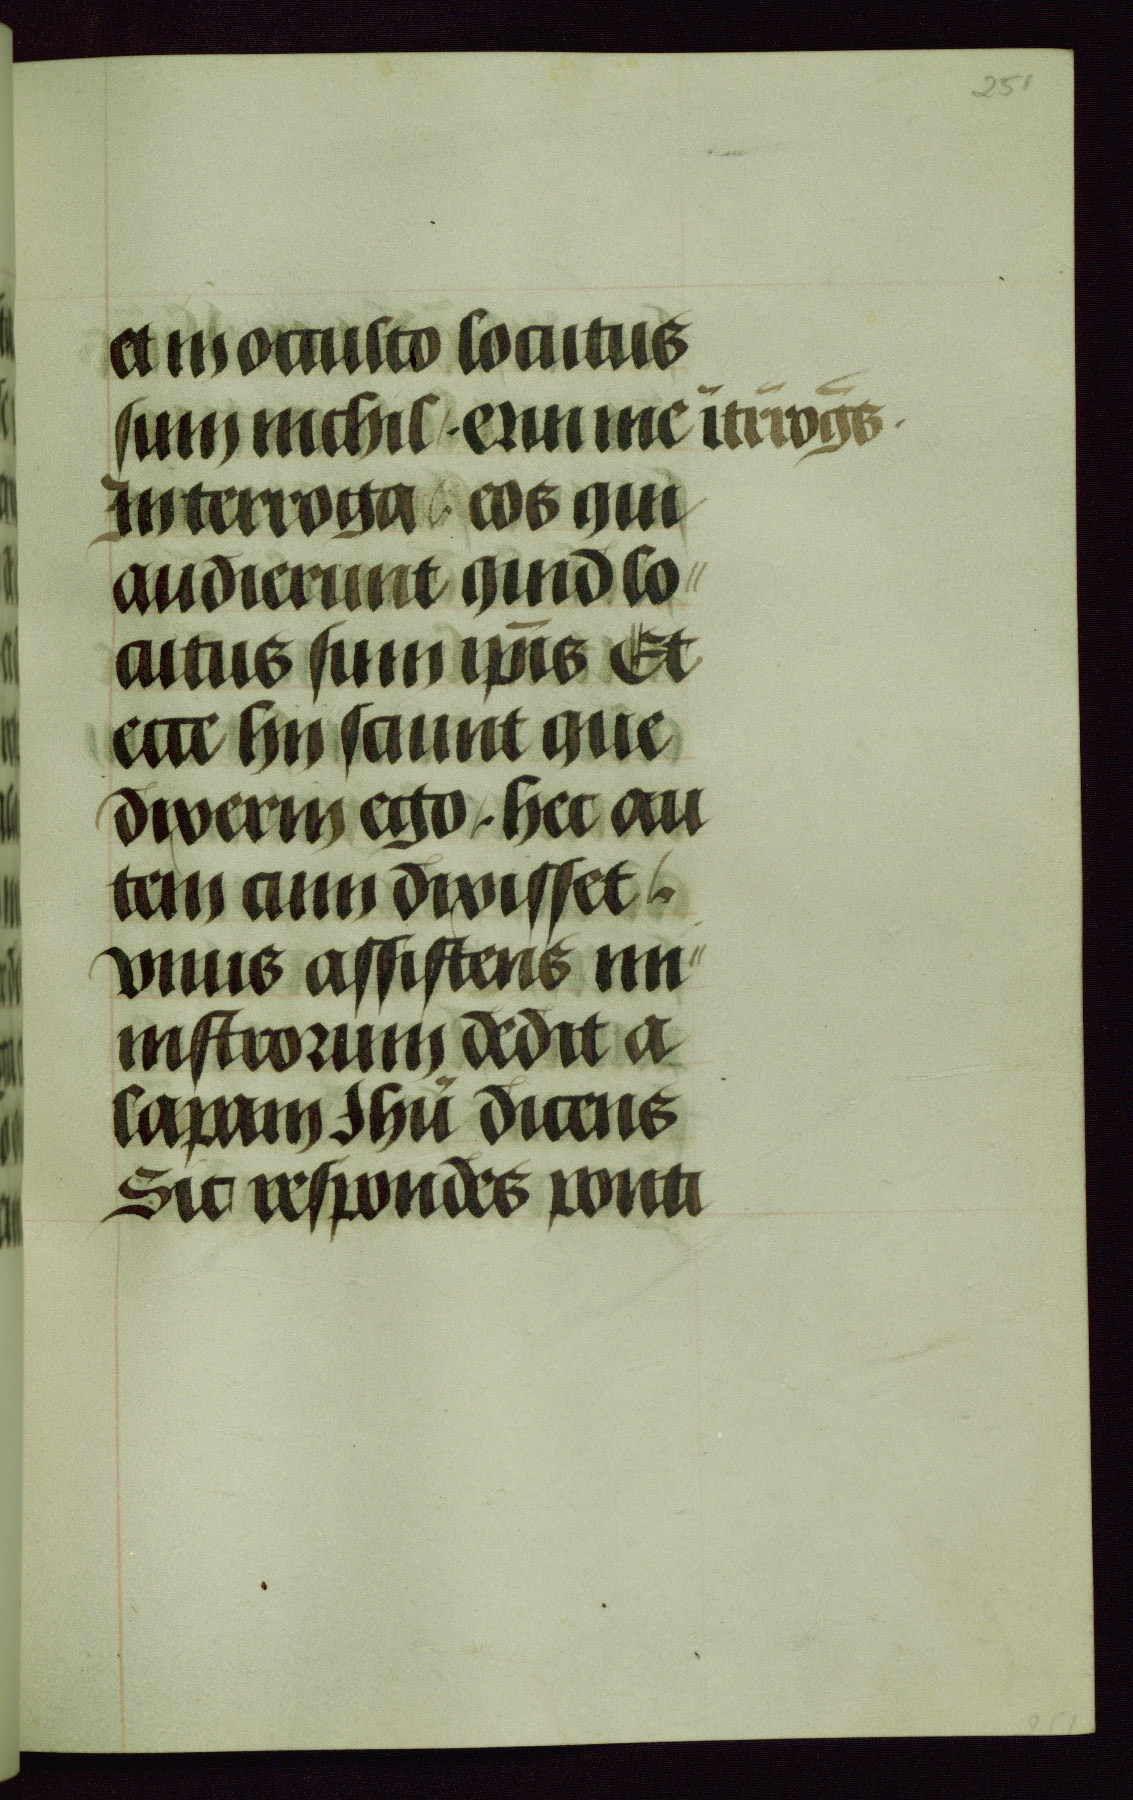 251
et in occulto locutus
sum nichil / . Quin me ītrrogs .
Interroga / . eos qui
audierunt quid lo〃
cutus sum ip̄is Et
ecce hii sciunt que
dixerim ego / . hec au
tem cum dixisset / .
vnus assistens mi〃
nistrorum dedit a
lapam Ihū dicens
Sic respondes ponti